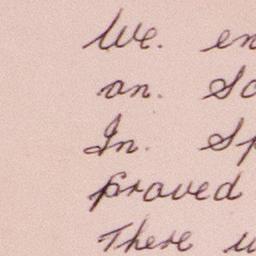 We. en
an. So
In. Sp
proved
There w